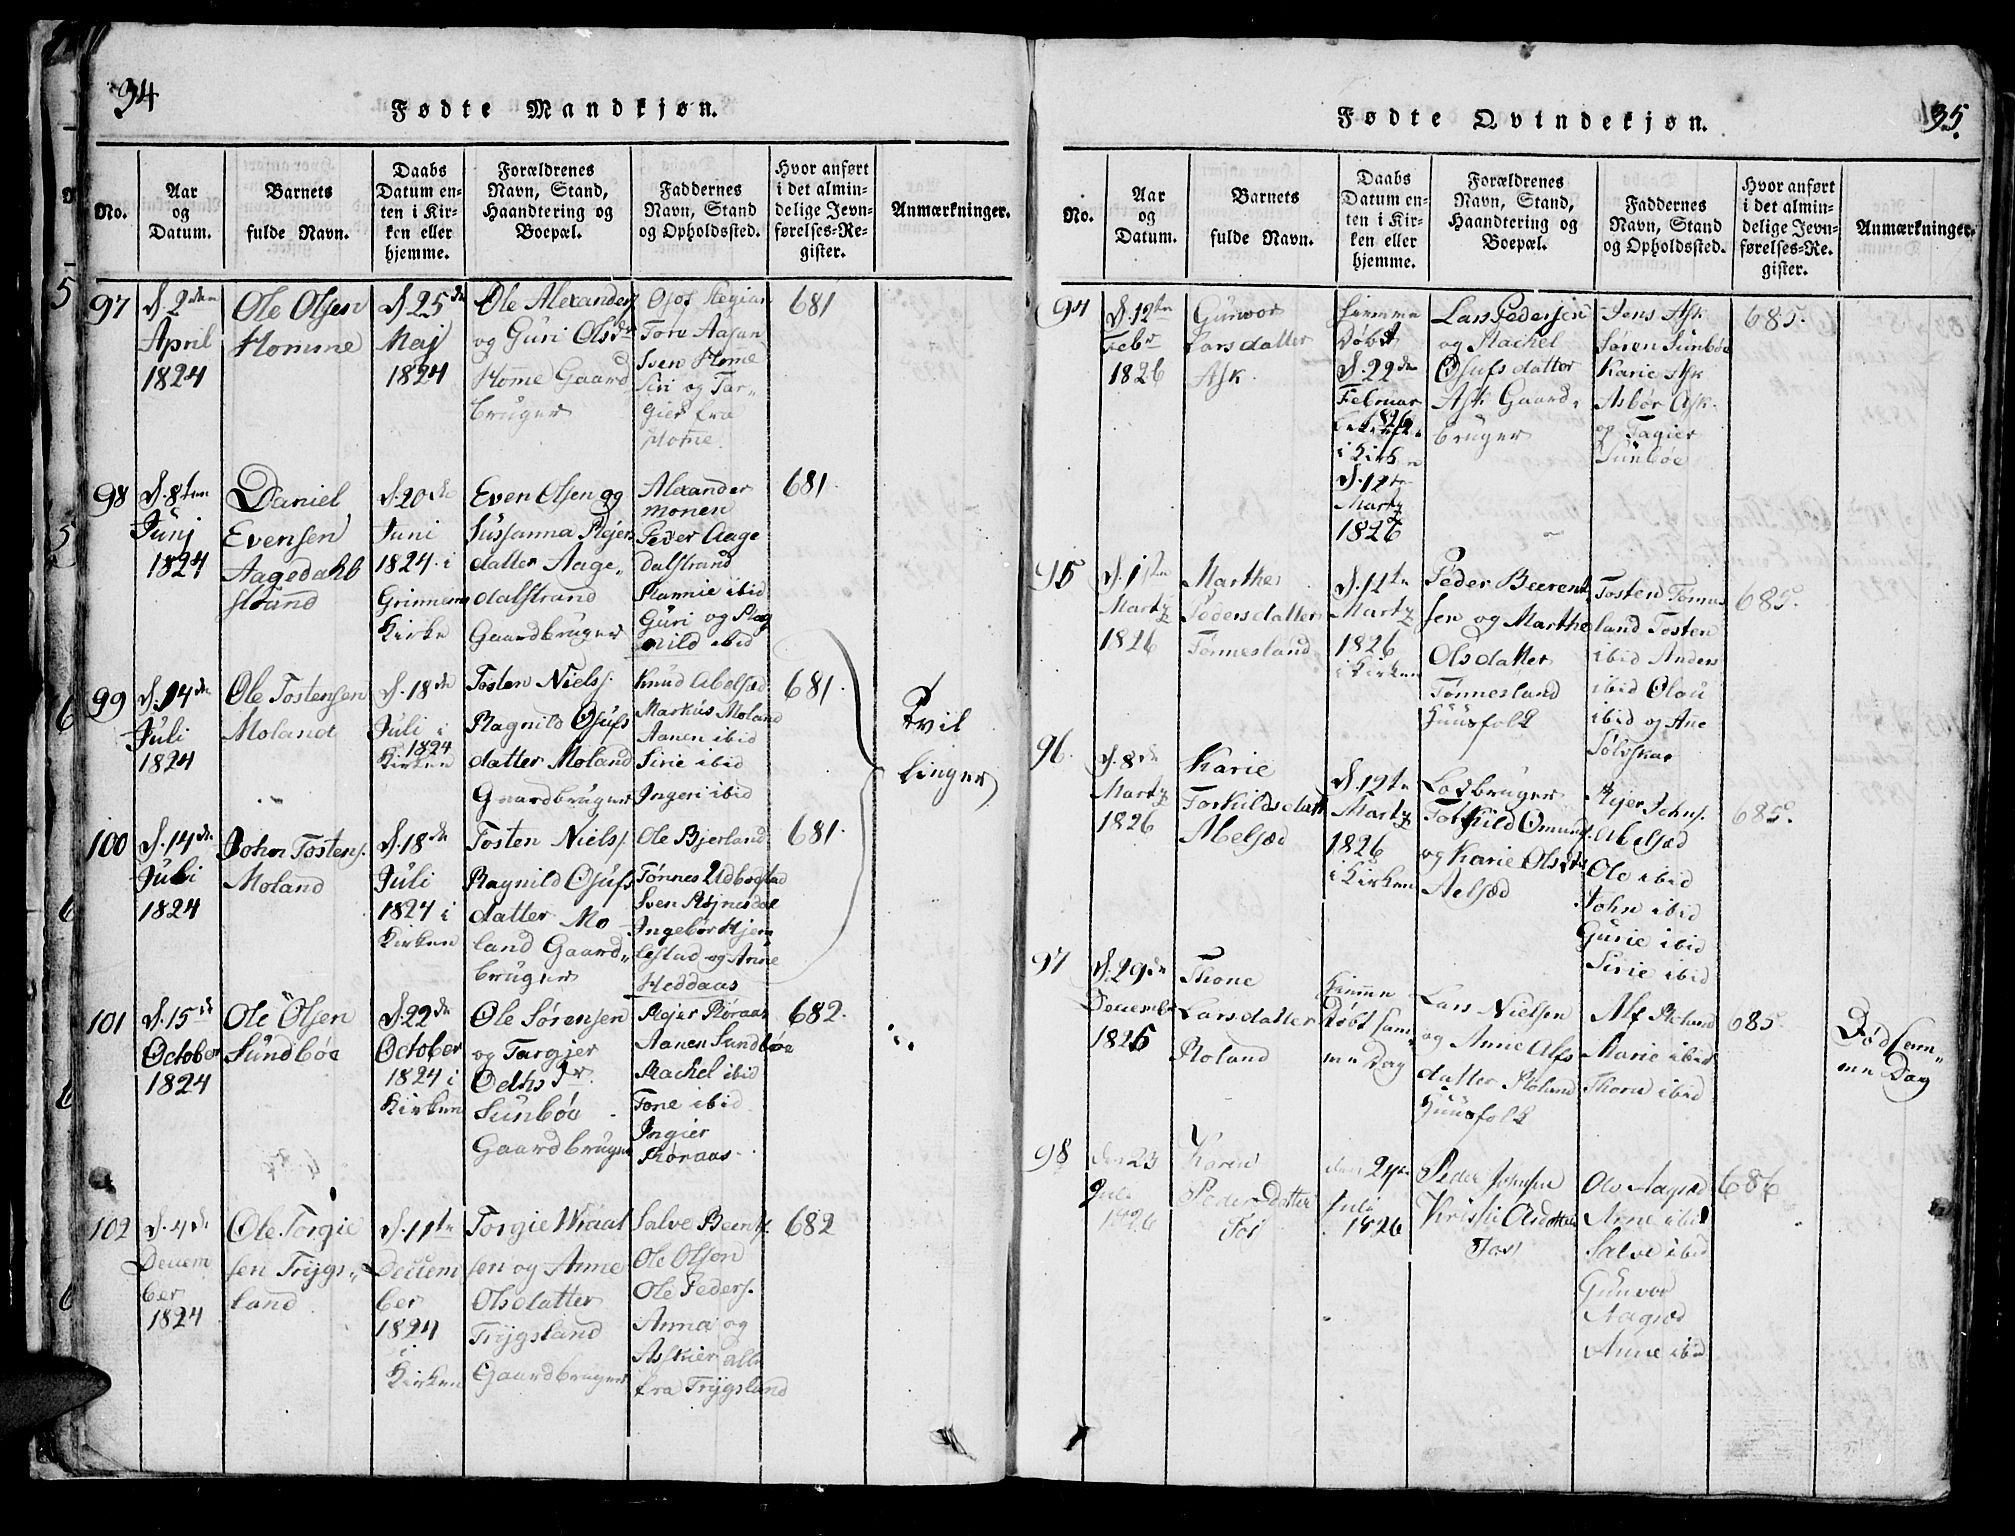 34
Fødte Mandkjøn.
No.
Aar
og
Datum.
Barnets
fulde Navn.
Daabs
Datum en-
ten i Kir-
ken eller
hjemme.
Forældrenes
Navn, Stand,
Haandtering og
Boepæl.
Faddernes
Navn, Stand
og Opholdssted.
Hvor anført
i det almin-
delige Jevn-
førelses-Re-
gister.
Anmærkninger.
97
d. 2den
April
1824
Ole Olsen
Homme
d. 25de
Maj
1824
Ole Alexanders
og Guri Olsdr
Home Gaard
bruger
Tore Aasan
Sven Home
Siri og Tar-
gier fra
Home.
681
98
d. 8ten
Junj
1824
Daniel
Evensen
Aagedahl
strand
d. 20de
Juni
1824 i
Kirke
Even Olsen og
Susanna Rejers
datter Aage-
dalstrand
Gaardbruger
Alexander
monen
Peder Aage
dalstrand
ibid
Guri og Rag
nild ibid
681.
99
d. 14de
Juli
1824
Ole Tostensen
Moland
d. 18de
Juli i
1824
Kirken
Tosten Niels.
Ragnild Osufs
datter Moland
Gaardbruger
Knud Abelsæd
Markus Moland
Aanen ibid
Sirie ibid
Ingeri ibid
681.
Tvil
linger
100
d. 14de
Juli
1824
John Tostens.
Moland
d. 18de
Juli
1824 i
Kirken
Tosten Niels.
Ragnild Osufs
datter Mo-
land Gaard-
bruger
Ole Bjerland
Tønnes Udbogstad
Sven
Ingebor Hjem
lestad og Anne
Heddaas
681.
101
d. 15de
October
1824
Ole Olsen
Sundbøe
d. 22de
October
1824 i
Kirken
Ole Sørensen
og Targjer
Oelhsdr.
Sunbøe
Gaardbruger
Rejer Røraas
Aanen Sundbøe
Rachel ibid
Tone ibid
Ingier
Røraas
682.
102
d. 4de
Decem
ber
1824
Ole Torgie
sen Trygs-
land
d. 11te
Decem
ber
1824
i
Kirken
Torgie Wraal
sen og Anne
Olsdatter
Trygsland
Gaardbruger
Salve Beents.
Ole Olsen
Ole Peders.
Anna og
Askier alle
fra Trygsland
682
35.
Fødte Qvindekjøn.
No.
Aar
og
Datum.
Barnets
fulde Navn.
Daabs
Datum en-
ten i Kir-
ken eller
hjemme.
Forældrenes
Navn, Stand,
Haandtering og
Boepæl.
Faddernes
Navn, Stand
og Opholdssted.
Hvor anført
i det almin-
delige Jevn-
førelses-Re-
gister.
Anmærkninger.
94
d. 12te
Febr
1826
Gunvor
Larsdatter
Ask
hjemme
døbt
d. 22de
Februar
1826
i Kirken
d. 12te
Martz
1826
Lars Pedersen
og Rachel
Osufsdatter
Ask Gaard-
bruger
Jens Ask
Søren Sunbøe
Karie Ask
Asbør Ask.
og Tagier
Sunbøe
685.
95
d. 1ste
Martz
1826
Marthe
Pedersdatter
Tønnesland
d. 12te
Martz
1826
i Kirken
Peder Beerent
sen og Marthe
Olsdatter
Tønnesland
Huusfolk
Tosten Tønnes
land Tosten
ibid Anders
ibid Olau
ibid og Ane
Sølvskar
685.
96.
d. 8de
Martz
1826
Karie
Torkildsdatt
Abelsæd
d. 12te
Martz
1826
i Kirken
Lodbruger
Torkild Omunds.
og Karie Olsdtr
Aelsæd
Rejer Johns.
Abelsæd
Ole ibid
John ibid
Gurie ibid
Sirie ibid
685.
97
d. 29de
Decembr
1825
Thone
Larsdatter
Roland
hiemme
døbt sam-
me Dag
Lars Nielsen
og Anne Alfs
datter Roland
Huusfolk
Alf Roland
Marie ibid
Thore ibid
685.
Død sam-
me Dag
98
den 23
Juli
1826
Karen
Pedersdatter
Fos
den 24de
Juli
1826
Peder Jensen
Fos
Ole Aagsæd
Arne ibid
Salve ibid
Gunvor
Aagsæd
Anne ibid
686